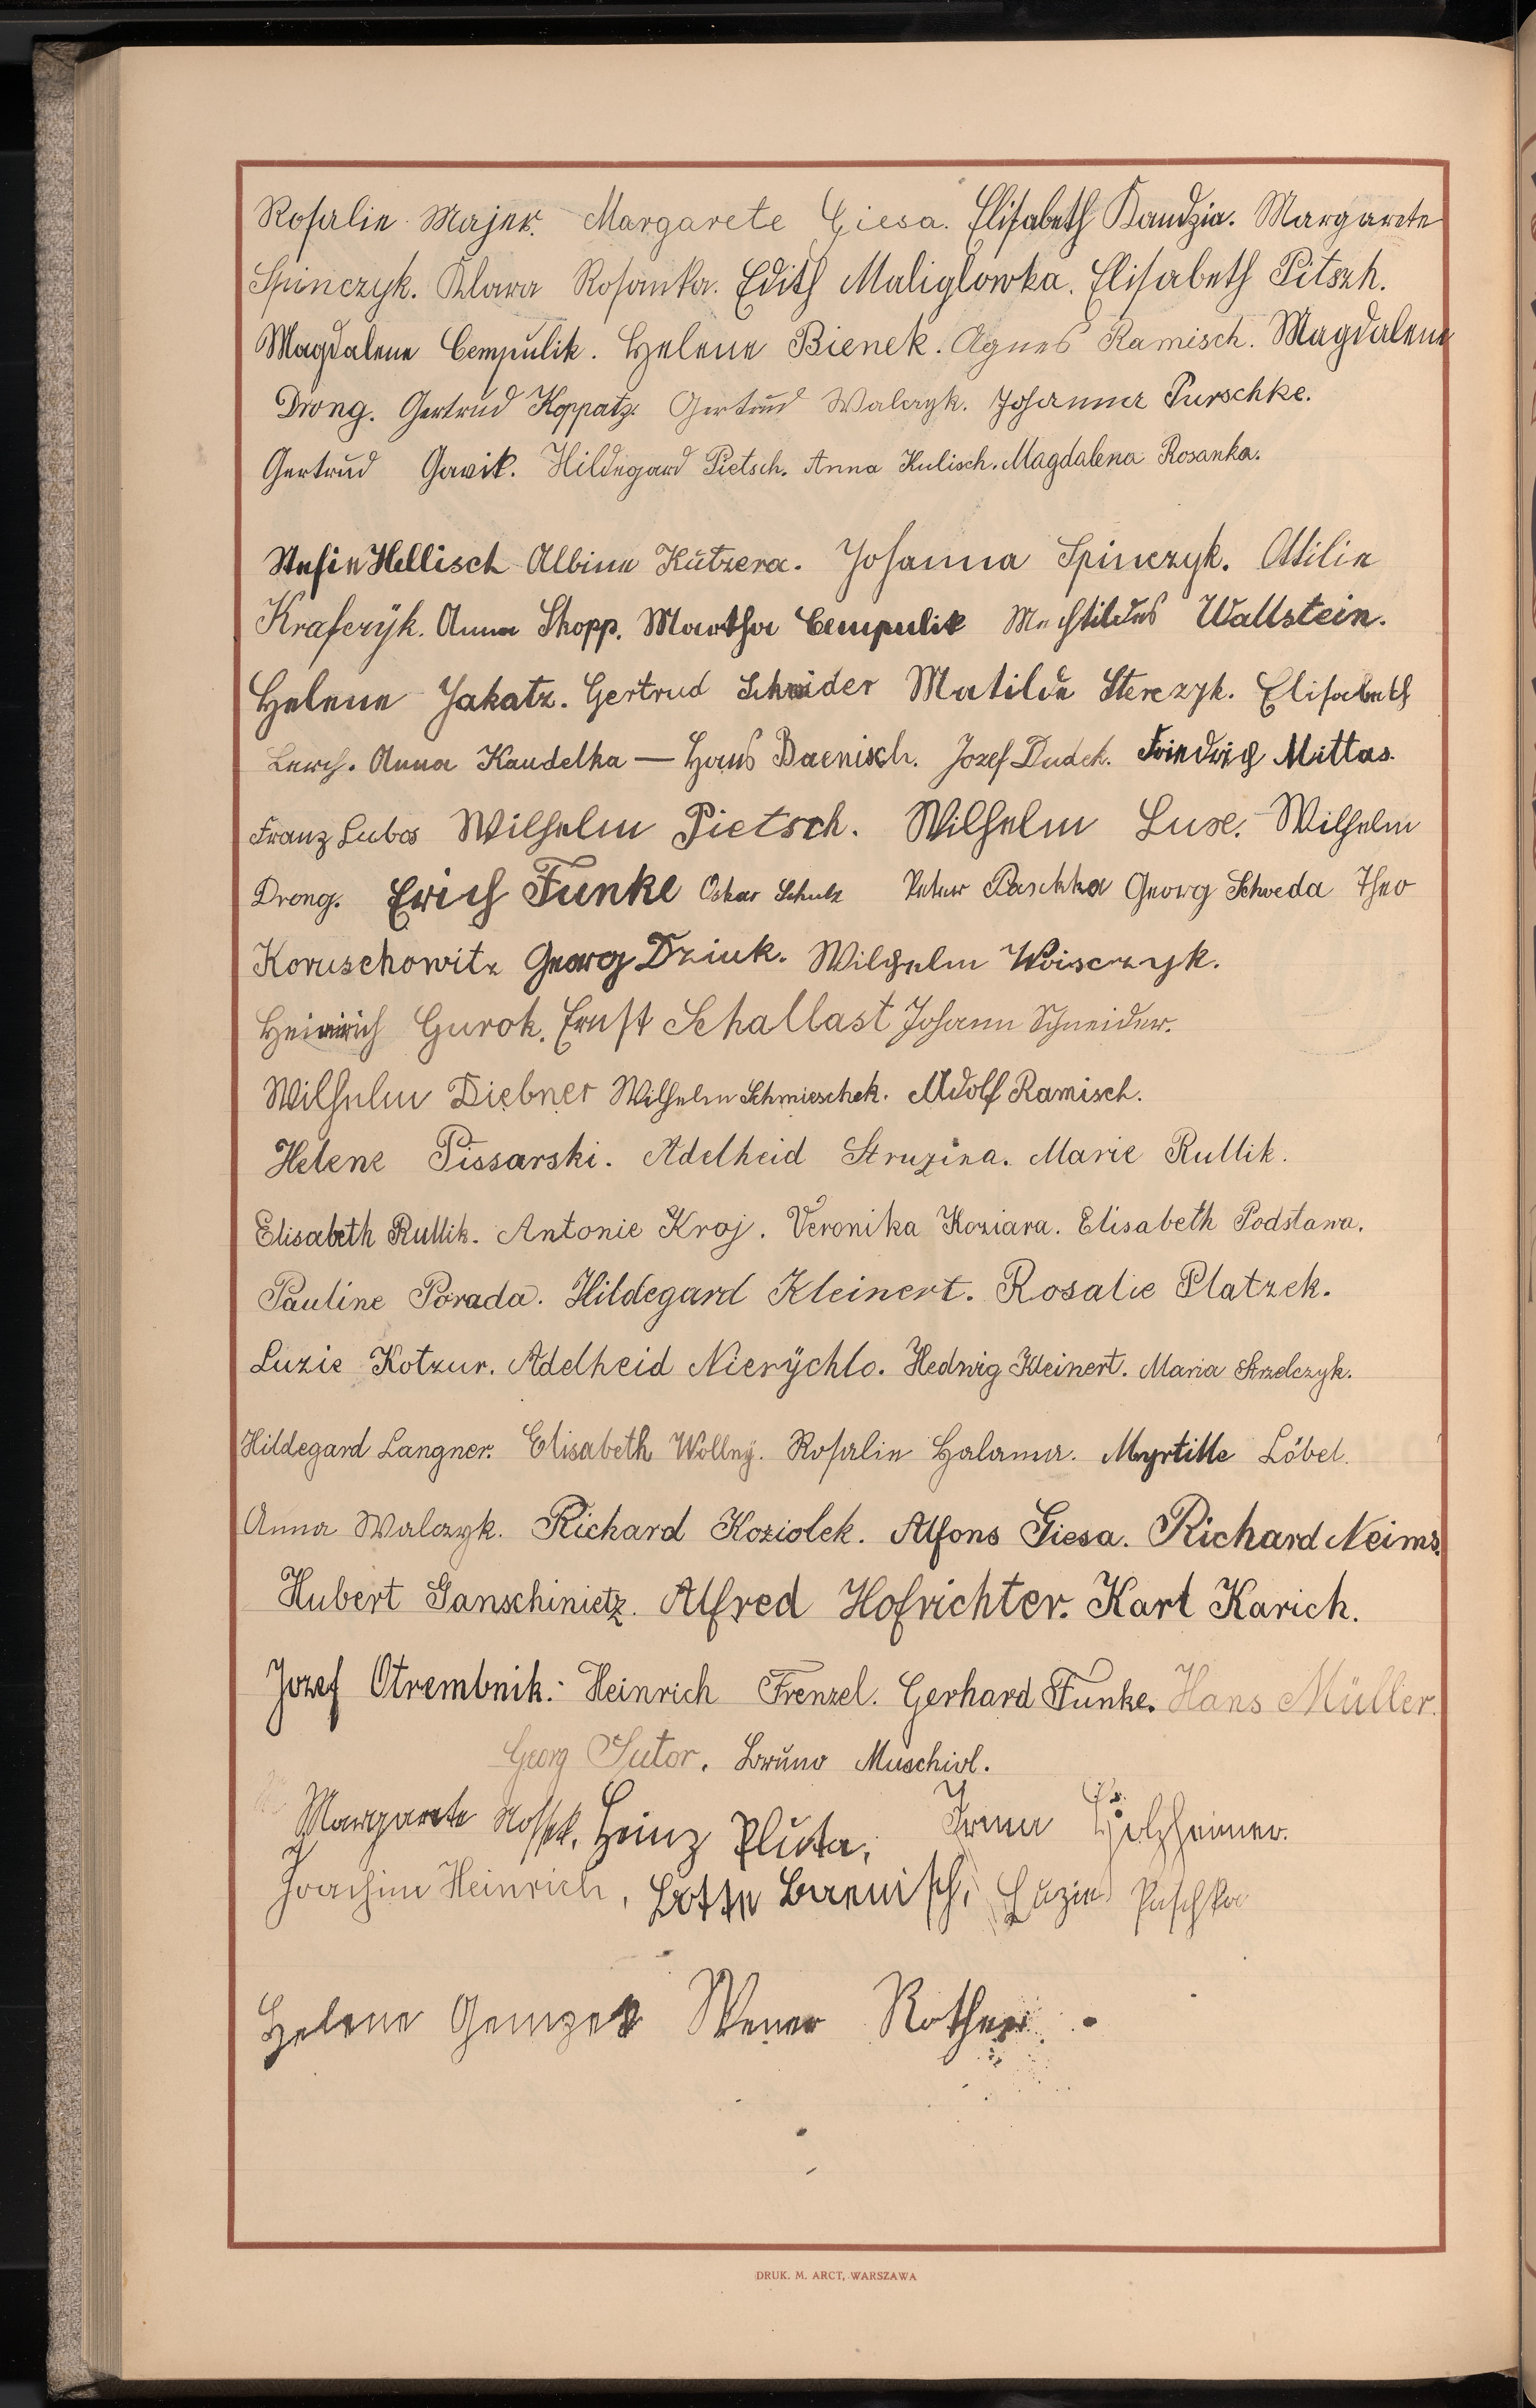 Rosalie Majer. Margarete Giesa. Elisabeth Kandzia. Margarete
Spinczyk. Klara Rosanka. Edith Maliglowka. Elisabeth Pitszh.
Magdalene Cempulik. Helene Bienek. Agnes Ramisch. Magdalene
Drong. Gertrud Koppatz. Gertrud Walczyk. Johanna Purschke.
Gertrud Gavik. Hildegard Pietsch. Anna Kulisch. Magdalena Rosanka.
Stefie Hellisch Albine Kutzera. Johanna Spinczyk. Ottilie
Krafczyk. Anna Skopp. Martha Cempulik Wallstein.
Helene Jakatz. Gertrud Schneider Matilde Sterczyk. Elisabeth
Lerch. Anna Kaudelka — Hans Baenisch. Jozef Dudek. Friedrich Mittas.
Franz Lubos Wilhelm Pietsch. Wilhelm Luxe. Wilhelm
Drong. Erich Funke Oskar Schulz Peter Paschka Georg Schweda Theo
Koruschowitz Georg Dziuk. Wilhelm Woisczyk.
Heinrich Gurok. Ernst Schallast Johann Schneider.
Wilhelm Diebner Wilhelm Schmieschek. Adolf Ramisch.
Helene Pissarski. Adelheid Struzina. Marie Rullik.
Elisabeth Rullik. Antonie Kroj. Veronika Koziara. Elisabeth Podstawa.
Pauline Porada. Hildegard Kleinert. Rosalie Platzek.
Luzie Kotzur. Adelheid Nierÿchlo. Hedwig Kleinert. Maria Strzelczyk.
Hildegard Langner. Elisabeth Wollnÿ. Rosalie Halama. Myrtille Löbel.
Anna Walczyk. Richard Koziolek. Alfons Giesa. Richard Neims.
Hubert Ganschinietz. Alfred Hofrichter. Karl Karich.
Jozef Otrembnik. Heinrich Frenzel. Gerhard Funke. Hans Müller.
Georg Sutor. Bruno Muschiol.
Margarete Heinz Pluta, Irma Holzheimer.
Joachim Heinrich, Lotte Baenisch, Luzie Paschka
Helene Werner Rother.
DRUK. M. ARCT, WARSZAWA